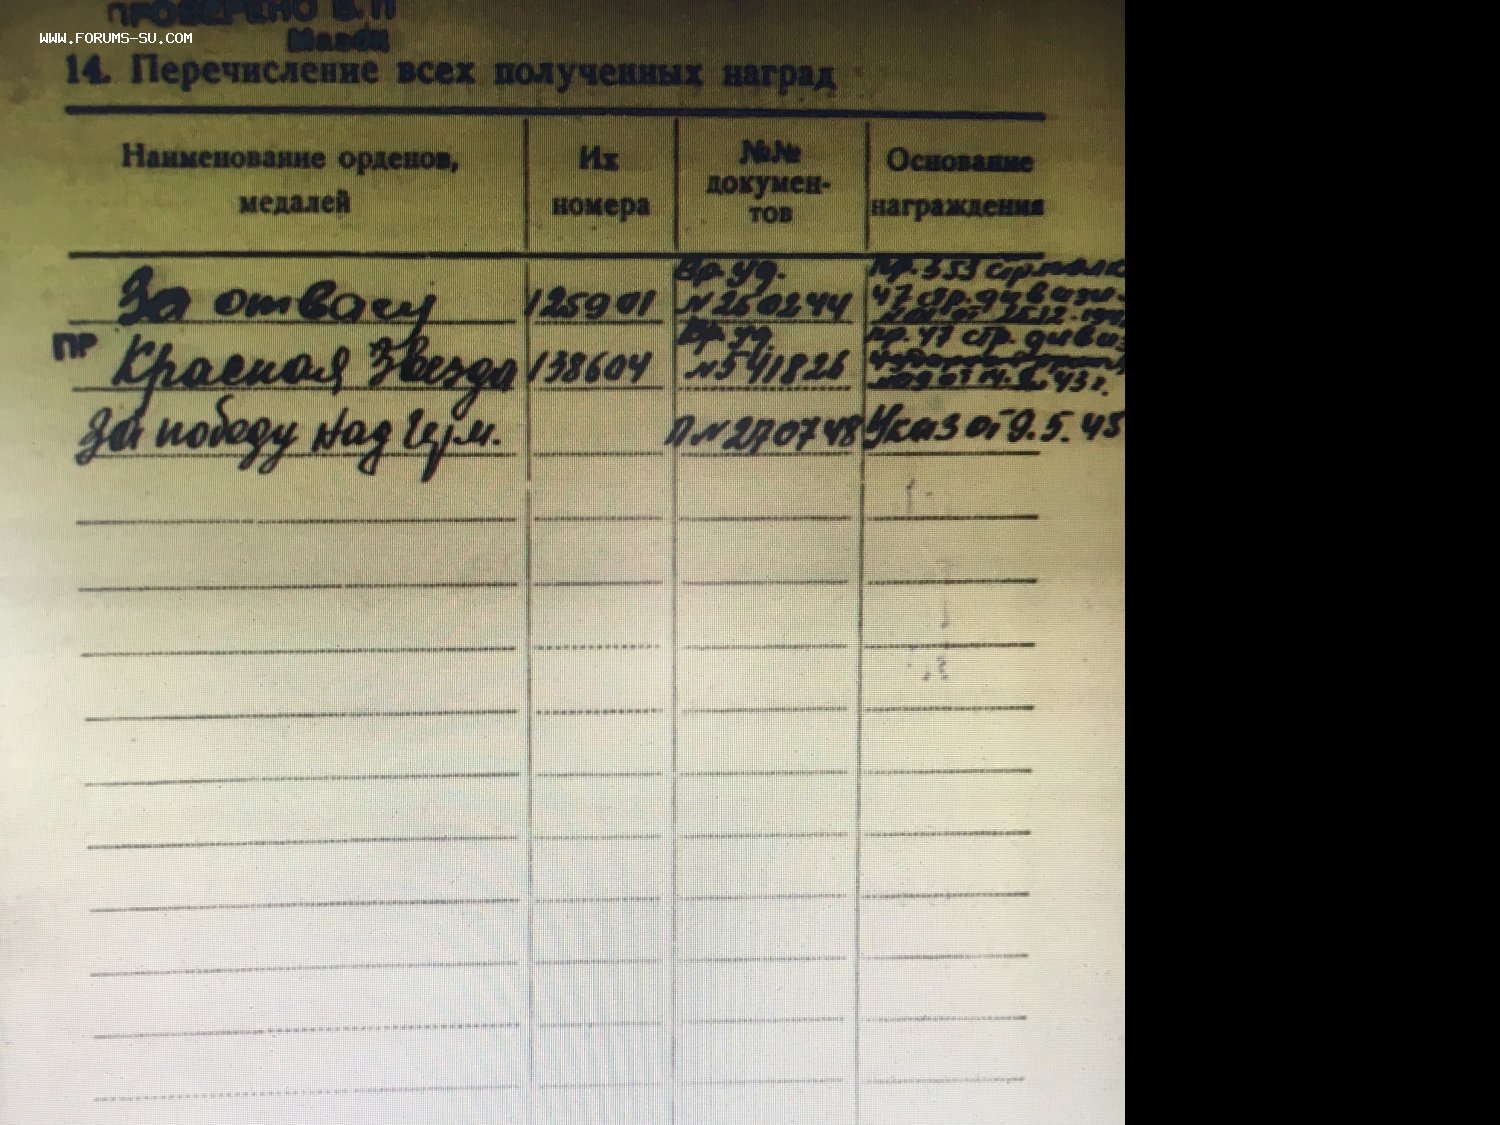 ПРОВЕРЕНО В.П
WWW.FORUMS-SU.COM
14. Перечисление всех полученных наград
Наименование орденов, медалей
Их номера
№№ докумен-
тов
Основание награждения
За отвагу 125901 Вр. уд. №260244 пр. 353 стр. полка 47 стр. дивизи-
ПР Красная Звезда 138604 Вр. уд. №541826 пр. 47 стр. дивиз 43 г.
За победу над Герм. П №270748 Указ от 9.5.45